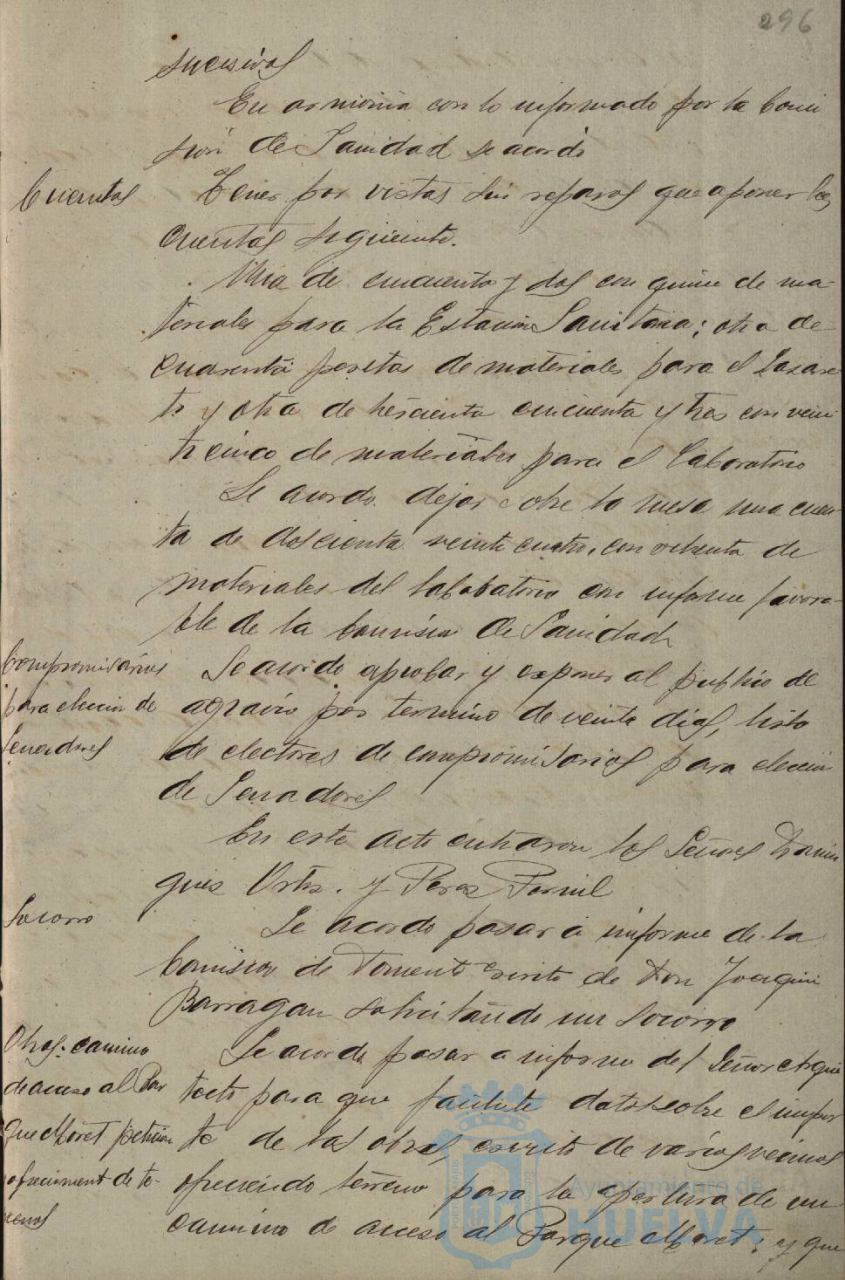 296
sucesivas
En armonia con lo informado por la Comi
sion de Sanidad se acordó
Cuentas
Tener por vistas sin reparos que aponer las
cuentas siguiente.
Una de cincuenta y dos con quince de ma-
teriales para la Estacion Sanitaria; otra de
cuarenta pesetas de materiales para el Lazare
to y otra de trescienta cincuenta y tres con vein
ticinco de materiales para el Laboratorio
Se acordo dejar sobre la mesa una cuen-
ta de doscienta veinte cuatro, con ochenta de
materiales del labobatorio con informe favora-
ble de la Comision de Sanidad
Compromisarios
para eleccion de
Senadores
Se acordo aprobar y exponer al publico de
agravio por termino de veinte dias, lista
de electores de compromisarios para eleccion
de Senadores
En este acto entraron los Señores Domin
gues Ortiz. y Peres
Socorro
Se acordo pasar a informe de la
Comision de Foment escrito de Don Joaquin
Barragan solicitando un socorro
Obras. camino
de acceso al Par
que Moret peticion
ofreciment de te-
renos
Se acordo pasar a informe del Señor Arqui
tecto para que facilite datos sobre el impor
te de las obras, escrito de varios vecinos
ofreciendo terreno para la apertura de un
camino de acceso al Parque Moret; y que
Ayuntamiento de
HUELVA